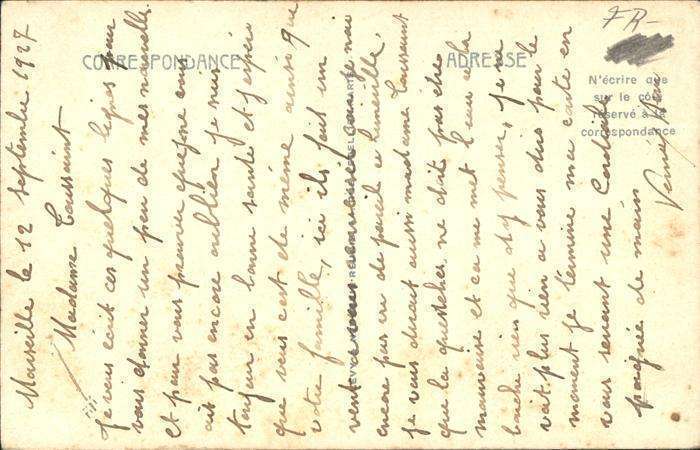 FR-
CORRESPONDANCE
ADRESSE
N'écrire que
sur le côté
réservé à la
correspondance
Marseille le 12 septembre 1927
Madame Toussaint
Je vous écrit ces quelques lignes pour
vous donner un peu de mes nouvelle
et pour vous prouver que je ne vous
ais pas encore oublier je suis
toujour en bonne santé et j'espère
que vous c'est de même ainsi que
votre famille, ici ils fait un
vent
encore pas vu de pareil a luneville,
je vous dirait aussi madame Toussaint
que la quetcher ne doit pas être
mauvaise et ca me met l'eau a la
bouche rien que d'y penser, je ne
voit plus rien a vous dire pour le
moment je termine ma carte en
vous serrant une Cordiale
poignée de main